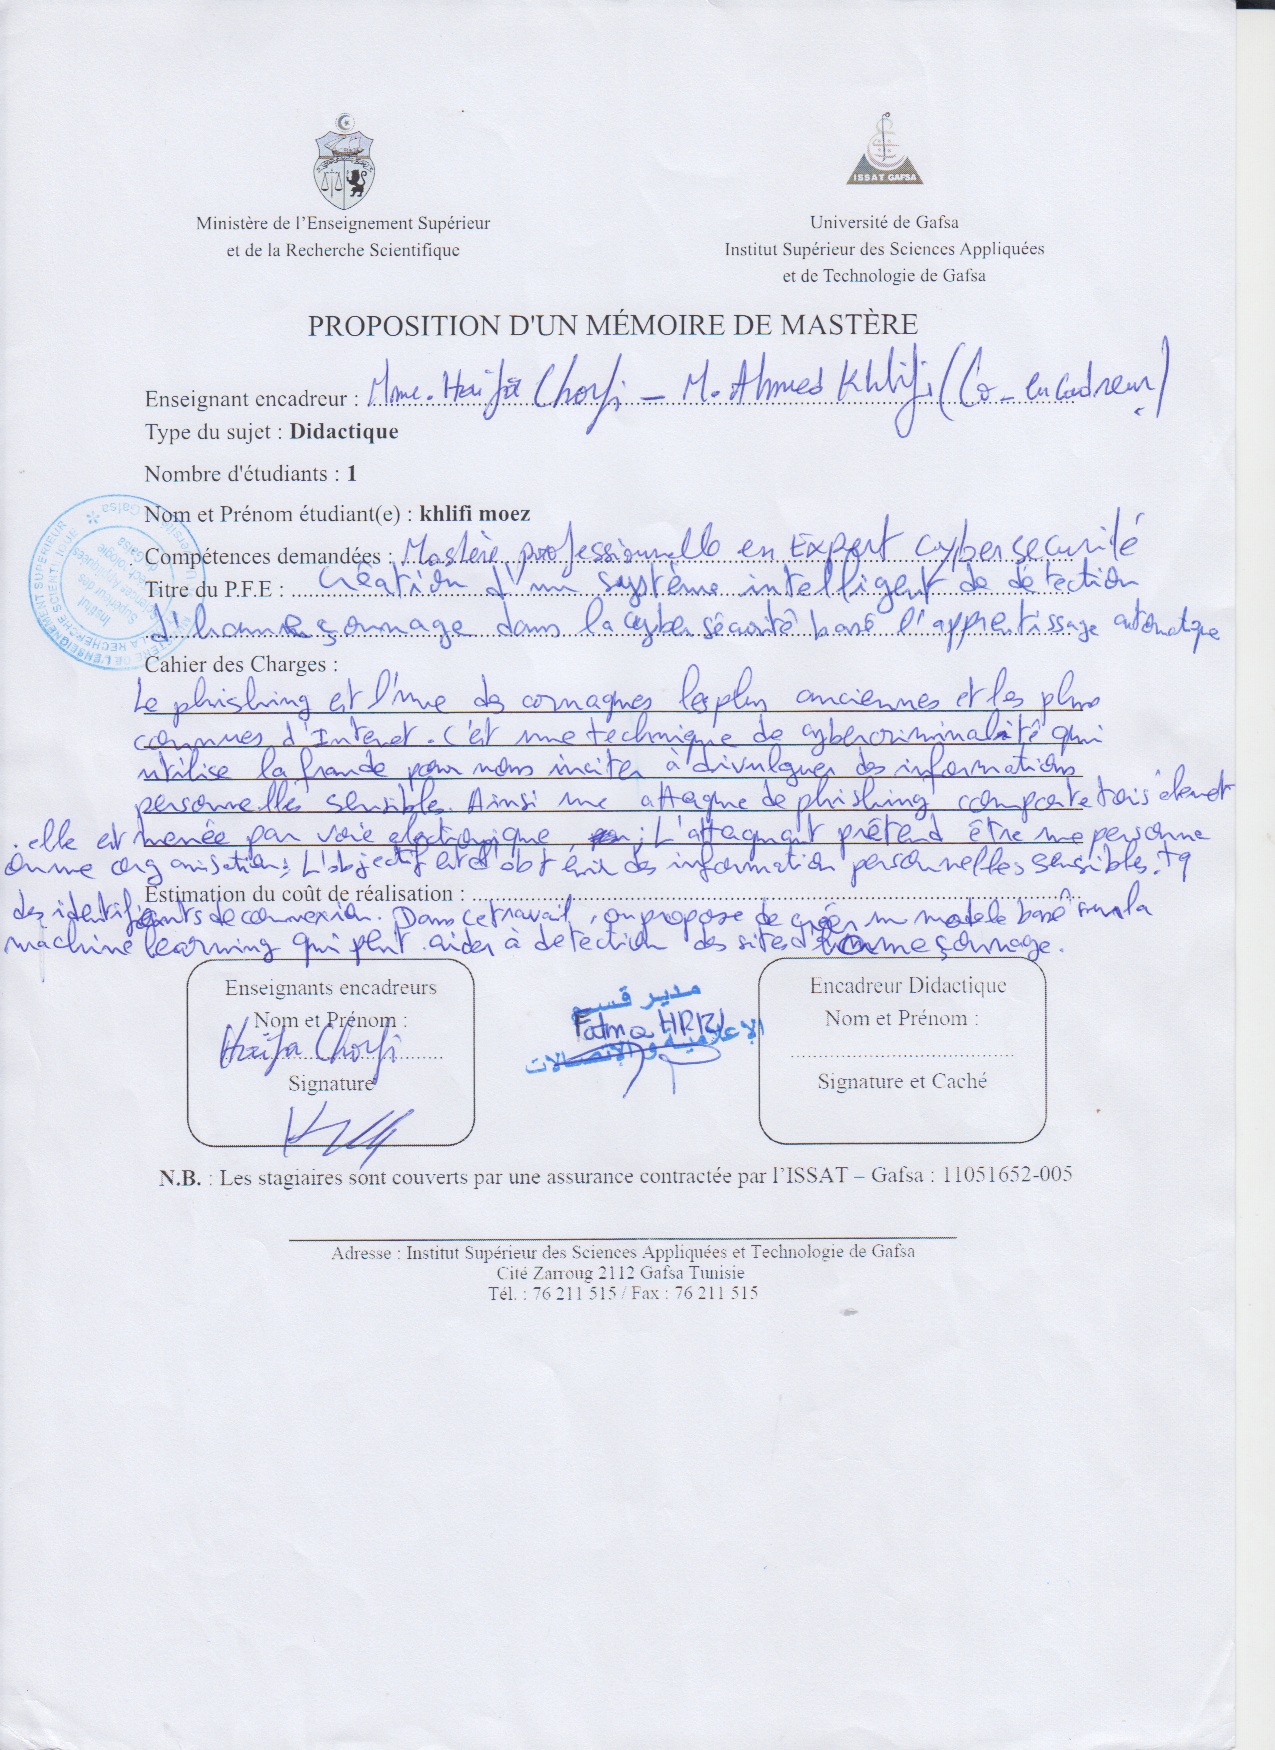 ISSAT GAFSA
Ministère de l'Enseignement Supérieur
et de la Recherche Scientifique
Université de Gafsa
Institut Supérieur des Sciences Appliquées
et de Technologie de Gafsa
PROPOSITION D'UN MÉMOIRE DE MASTÈRE
Enseignant encadreur : Mme. Haifa Chorfi - M. Ahmed Khlifi (Co-encadreur)
Type du sujet : Didactique
Nombre d'étudiants : 1
Nom et Prénom étudiant(e) : khlifi moez
Compétences demandées : Mastère professionnelle en Expert cybersécurité
Titre du P.F.E : Création d'un système intelligent de détection
d'hameçonnage dans la cybersécurité basé l'apprentissage automatique
Cahier des Charges :
Le phishing est l'une des arnaques les plus anciennes et les plus
connues d'Internet. C'est une technique de cybercriminalité qui
utilise la fraude pour nous inciter à divulguer des informations
personnelles sensible. Ainsi une attaque de phishing comporte trois
. elle est menée par voie electronique ; L'attaquant prétend être une personne
ou une organisation; L'objectif est d'obtenir des information personnelles sensibles. tq
Estimation du coût de réalisation :
des identifiants de connexion. Dans ce travail, on propose de créer un modele basé sur la
machine learning qui peut aider à detection des sites d'hameçonnage.
Enseignants encadreurs
Nom et Prénom :
Haifa Chorfi
Signature
مدير قسم
Fatma HRIZI
الإعلامية و الإتصالات
Encadreur Didactique
Nom et Prénom :
Signature et Caché
N.B. : Les stagiaires sont couverts par une assurance contractée par l'ISSAT – Gafsa : 11051652-005
Adresse : Institut Supérieur des Sciences Appliquées et Technologie de Gafsa
Cité Zarroug 2112 Gafsa Tunisie
Tél. : 76 211 515 / Fax : 76 211 515